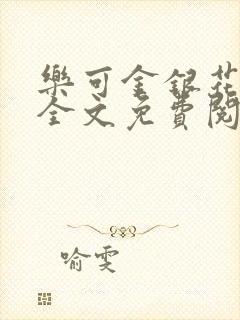 樂可金銀花
全文免費閱
喻雯